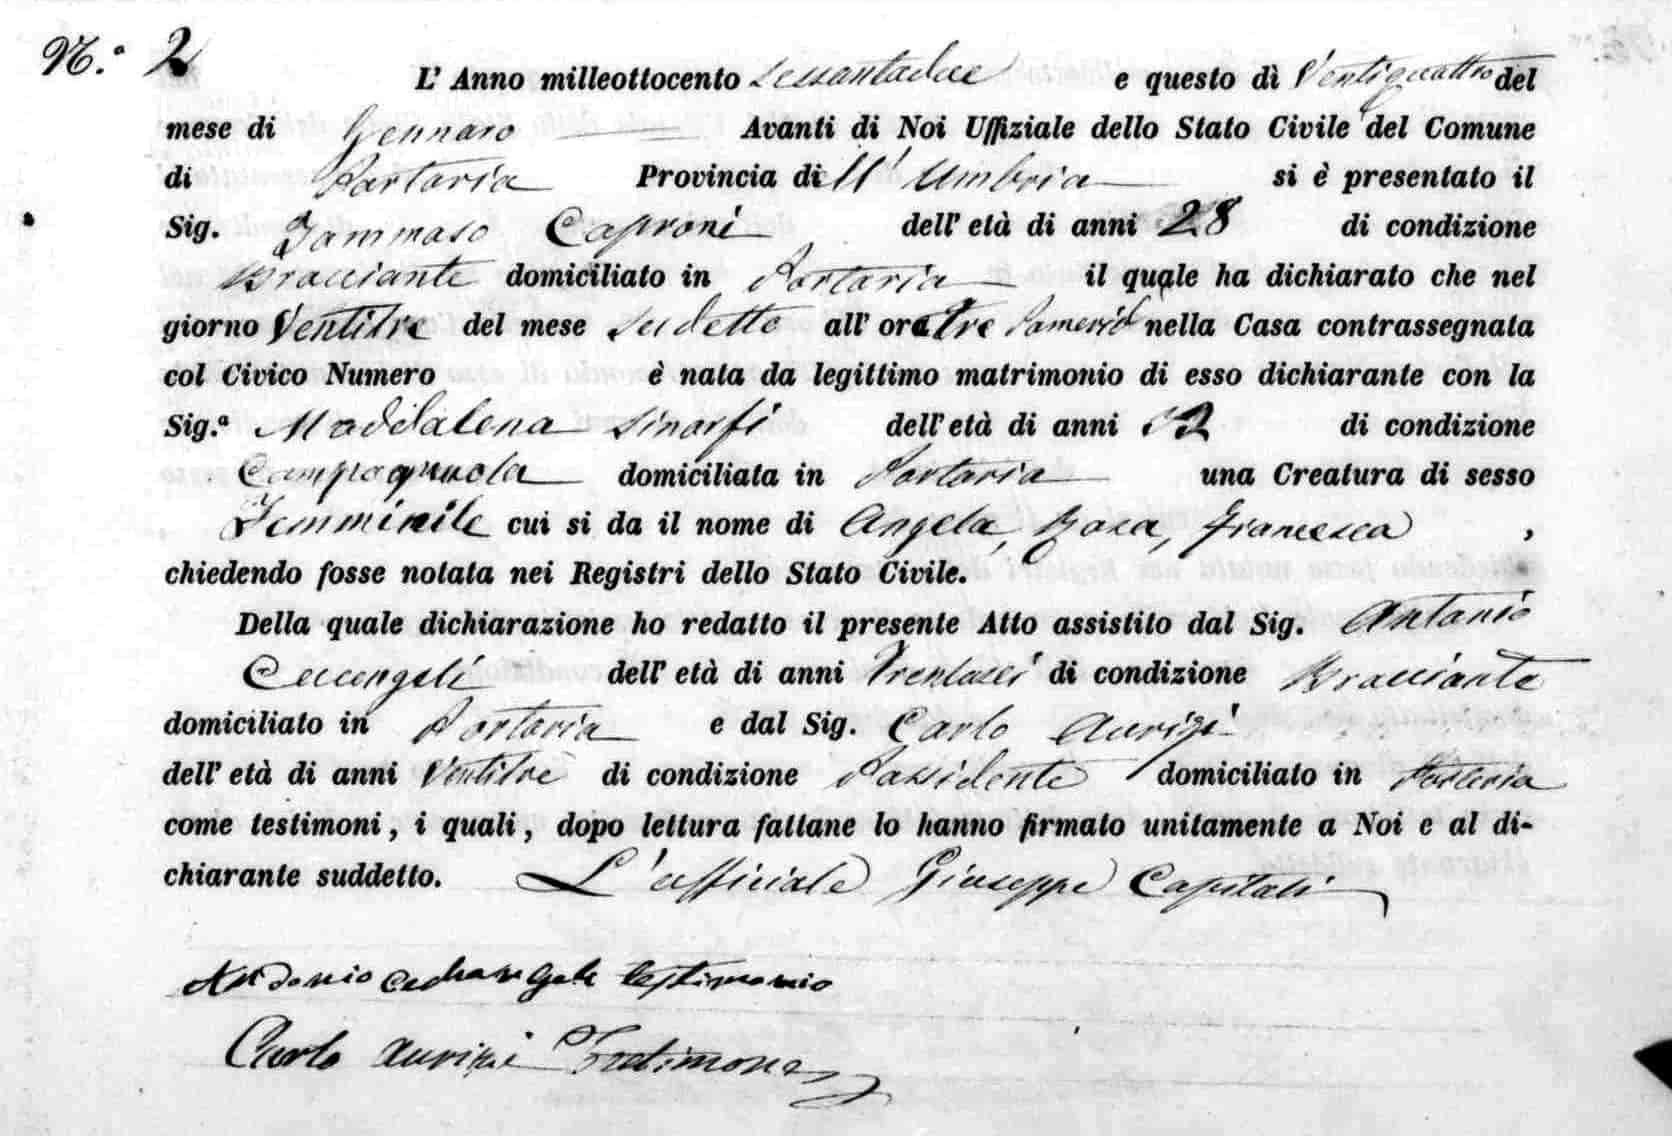 N.° 2
L' Anno milleottocento Sessantadue e questo dì Ventiquattro del
mese di Gennaro Avanti di Noi Uffiziale dello Stato Civile del Comune
di Portaria Provincia dell' Umbria si è presentato il
Sig. Tommaso Caproni dell' età di anni 28 di condizione
Bracciante domiciliato in Portaria il quale ha dichiarato che nel
giorno Ventitre del mese sudetto all' ora tre Pamerid nella Casa contrassegnata
col Civico Numero è nata da legittimo matrimonio di esso dichiarante con la
Sig.ª Maddalena dell' età di anni 32 di condizione
Campagnuola domiciliata in Portaria una Creatura di sesso
Femminile cui si da il nome di Angela, Rosa, Francesca ,
chiedendo fosse notata nei Registri dello Stato Civile.
Della quale dichiarazione ho redatto il presente Atto assistito dal Sig. Antonio
dell' età di anni Trentasei di condizione Bracciante
domiciliato in Portaria e dal Sig. Carlo Aurizi
dell' età di anni Ventitre di condizione Possidente domiciliato in Portaria
come testimoni, i quali, dopo lettura fattane lo hanno firmato unitamente a Noi e al di-
chiarante suddetto. L'ufficiale Giuseppe Capitali
Antonio testimonio
Carlo Aurizi Testimone